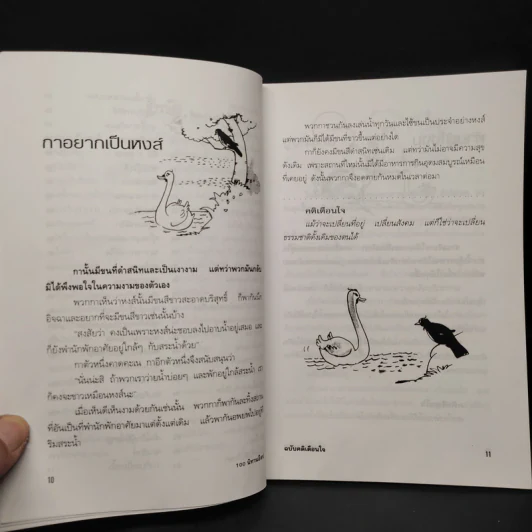 กาอยากเป็นหงส์
กานั้นมีขนที่ดำสนิทและเป็นเงางาม แต่ทว่าพวกมันกลับ
มิได้พึงพอใจในความงามของตัวเอง
พวกกาเห็นว่าหงส์นั้นมีขนสีขาวสะอาดบริสุทธิ์ ก็พากันนึก
อิจฉาและอยากที่จะมีขนสีขาวเช่นนั้นบ้าง
"สงสัยว่า คงเป็นเพราะหงส์นะชอบลงไปอาบน้ำอยู่เสมอ และ
ก็ยังพำนักพักอาศัยอยู่ใกล้ๆ กับสระน้ำด้วย"
กาตัวหนึ่งคาดคะเน กาอีกตัวหนึ่งจึงสนับสนุนว่า
"นั่นน่ะสิ ถ้าพวกเราว่ายน้ำบ่อยๆ และพักอยู่ใกล้สระน้ำ เรา
ก็คงจะขาวเหมือนหงส์นะ"
เมื่อเห็นดีเห็นงามด้วยกันเช่นนั้น พวกกาก็พากันละทิ้งสถาน
ที่อันเป็นที่พำนักพักอาศัยมาแต่ดั้งแต่เดิม แล้วพากันอพยพไปอยู่ที่
ริมสระน้ำ
10
100 นิทานอีสป
พวกกาชวนกันลงเล่นน้ำทุกวันและไซ้ขนเป็นประจำอย่างหงส์
แต่พวกมันก็มิได้มีขนที่ขาวขึ้นแต่อย่างใด
กาก็ยังคงมีขนสีดำสนิทเช่นเดิม แต่ทว่ามันไม่อาจมีความสุข
ดังเดิม เพราะสถานที่ใหม่นั้นมิได้มีอาหารการกินอุดมสมบูรณ์เหมือน
ที่เคยอยู่ ดังนั้นพวกกาจึงอดตายกันหมดในเวลาต่อมา
คติเตือนใจ
แม้ว่าจะเปลี่ยนที่อยู่ เปลี่ยนสังคม แต่ก็ใช่ว่าจะเปลี่ยน
ธรรมชาติดั้งเดิมของตนได้
ฉบับคติเตือนใจ
11